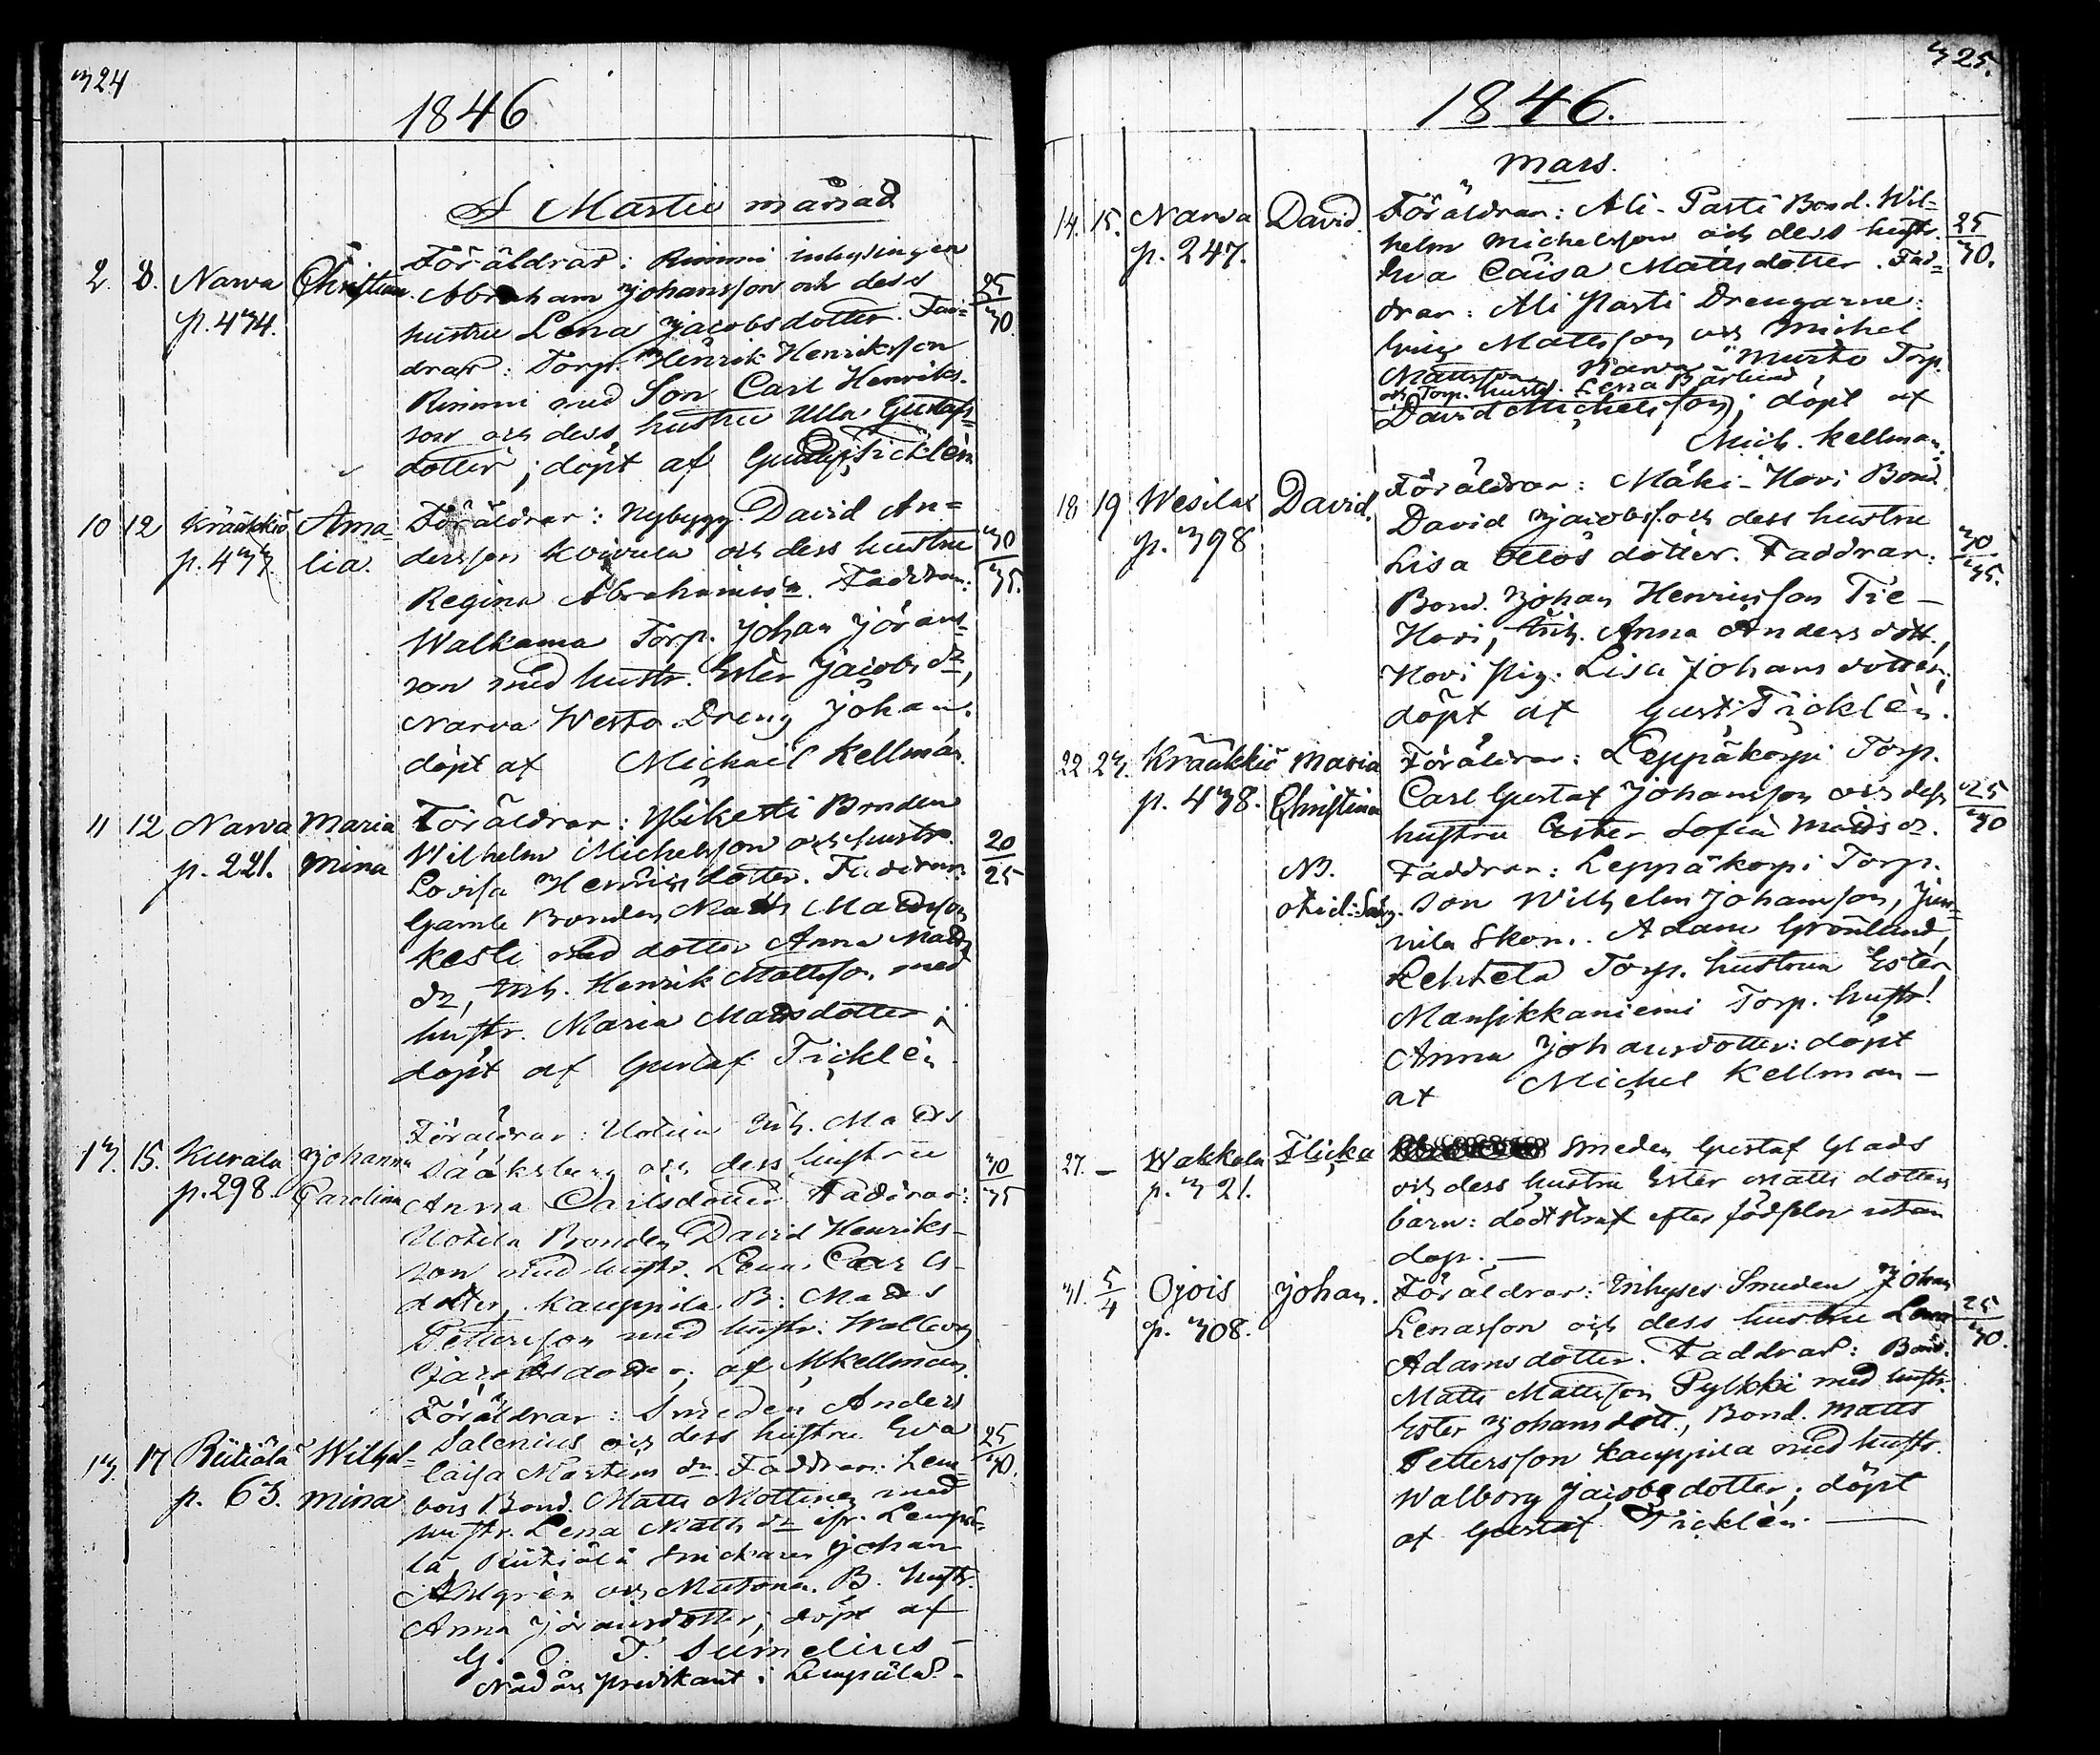 324
1846
I Martii månad
2. 8. Narva Christina. Föräldrar: Rimmi inhysingen
p. 434. Abraham Johansson och dess 25/30.
hustru Lena Jacobsdotter. Fad=
drar: Torp. Henrik Henriksson
Rimmi med Son Carl Henriks-
son och dess hustru Ulla Gustafs
dotter; döpt af Gustaf Ticklén
10 12 Krääkkiö Ama= Föräldrar: Nybygg. David An=
p. 433. lia. dersson Koivula och dess hustru 30/35.
Regina Abrahamsdr. Faddrar:
Walkama Torp. Johan Jörans-
son med hustr. Ester Jacobs dr,
Narva Westo Dreng Johan.
döpt af Michail Kellman.
11 12 Narva Maria Föräldrar: Ylikesti Bonden
p. 221. Mina Wilhelm Michelsson och hustr. 20/25
Lovisa Henriksdotter. Faddrar:
Gamle Bonden Matts Mattsson
Kesti med dotter Anna Matts
dr, Inh. Henrik Mattsson med
hustr. Maria Mattsdotter;
döpt af Gustaf Ticklén
13. 15. Kurala Johanna Föräldrar: Uotila Inh. Matts
p. 298. Carolina Sääksberg och dess hustru 30/35
Anna Carlsdotter Faddrar:
Uotila Bonden David Henriks-
son med hustr. Lena Carls-
dotter, Kauppila B: Matts
Pettersson med hustr. Wallborg
Jacobsdotter; af M Kellman.
13. 17 Riitiälä Wilhel= Föräldrar: Smeden Anders
p. 63. mina Salenius och dess hustru Eva 25/30.
Caisa Mårtens dr. Faddrar: Lem=
bois Bond. Matts Mottinen med
hustr. Lena Matts dr ifr. Lempä=
lä, Riitiälä Snickaren Johan
Ahlgrén och B. hustr.
Anna Jöransdotter; döpt af
G. O. T. Sumelius –
Nådårs predikant i Lempälä. –
325.
1846.
Mars.
14. 15. Narva David. Föräldrar: Ali-Pasti Bond. Wil=
p. 247. helm Michelsson och dess hustr. 25/30.
Eva Caisa Mattsdotter. Fad=
drar: Ali Pasti Drengarne:
Mattsson och Michel
Mattsson Narva Musto Torp
och Torp. hustr. Lena Bärlund
David Michelsson; döpt af
Mich. Kellman.
18 19 Wesilax David. Föräldrar: Mäki-Hovi Bond.
p. 398 David Jacobss. och dess hustru
Lisa Ottos dotter. Faddrar: 30/35.
Bond. Johan Henriksson Tie-
Hovi, Inh. Anna Anders dott.,
Hovi Pig. Lisa Johans dotter;
döpt af Gust. Ticklén.
22 23. Krääkkiö Maria Föräldrar: Leppäkorpi Torp.
p. 438. Christina Carl Gustaf Johansson och dess 25/30
hustru Ester Sofia Matts dr.
NB. Faddrar: Leppäkorpi Torp.
son Wilhelm Johansson, Jun-
nila Skom. Adam Grönlund,
Lehtelä Torp. hustrun Ester,
Mansikkaniemi Torp. hustr.
Anna Johansdotter: döpt
af Michel Kellman –
27. – Wakkala Flicka Smeden Gustaf Glads
p. 321. och dess hustru Ester Matts dotters
barn: dödt strax efter födseln utan
dop. –
31. 5/4 Ojois Johan. Föräldrar: Inhyses Smeden Johan
p. 308. Lenasson och dess hustru Lena 25/30.
Adamsdotter. Faddrar: Bond.
Matts Mattsson Pylkki med hustr.
Ester Johans dott., Bond. Matts
Pettersson Kauppila med hustr.
Walborg Jacobsdotter; döpt
af Gustaf Ticklén. –